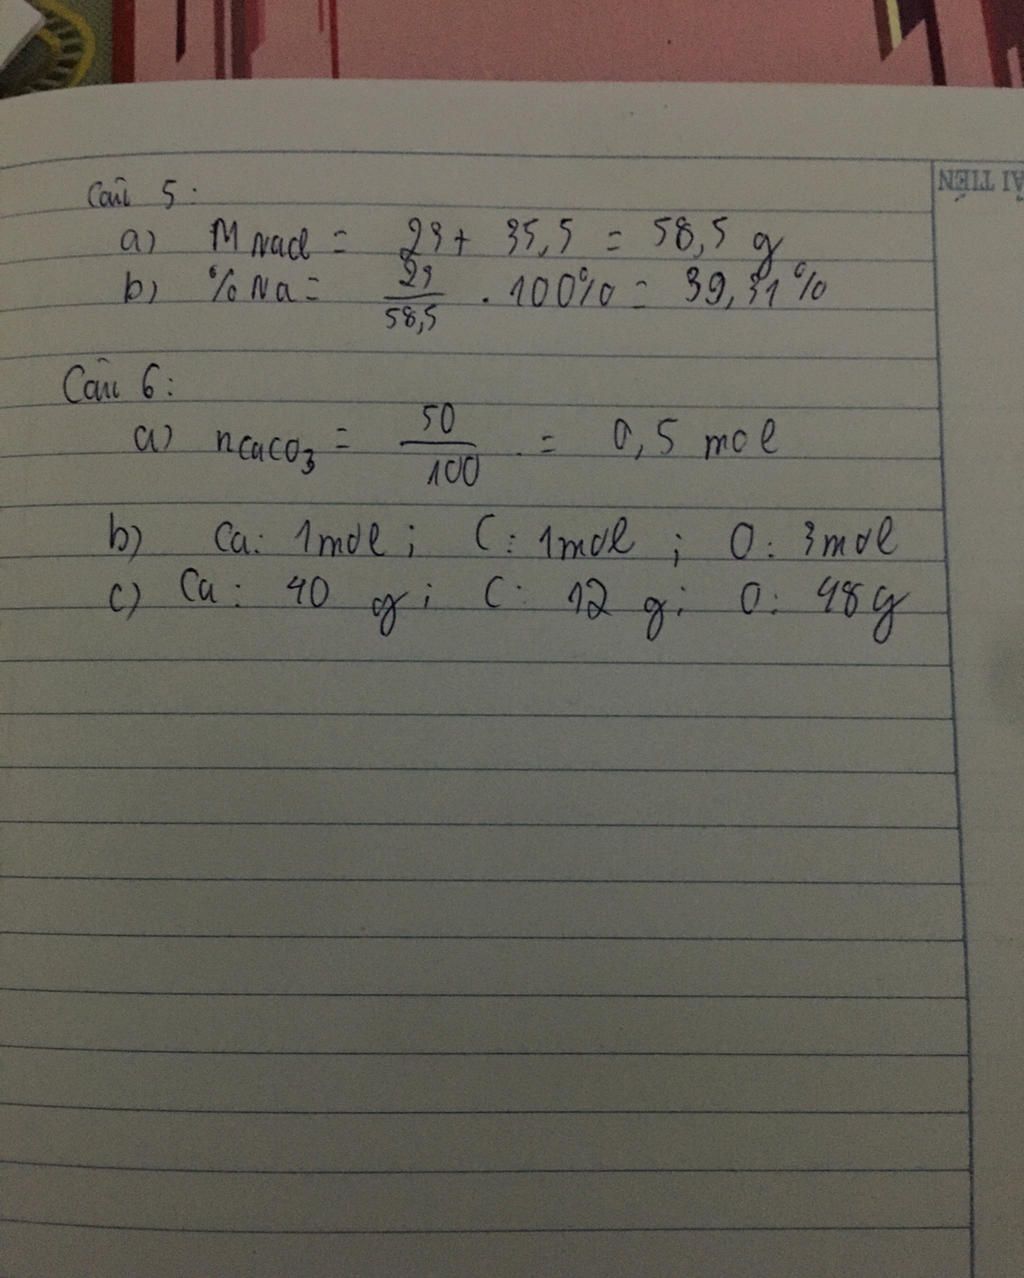 Câu 5:
a) M NaCl = 23 + 35,5 = 58,5 g
b) % Na = 23/58,5 . 100% = 39,31 %
Câu 6:
a) nCaCO3 = 50/100 = 0,5 mol
b) Ca: 1mol ; C: 1mol ; O: 3mol
c) Ca: 40 g ; C: 12 g ; O: 48g
ẢI TIẾN